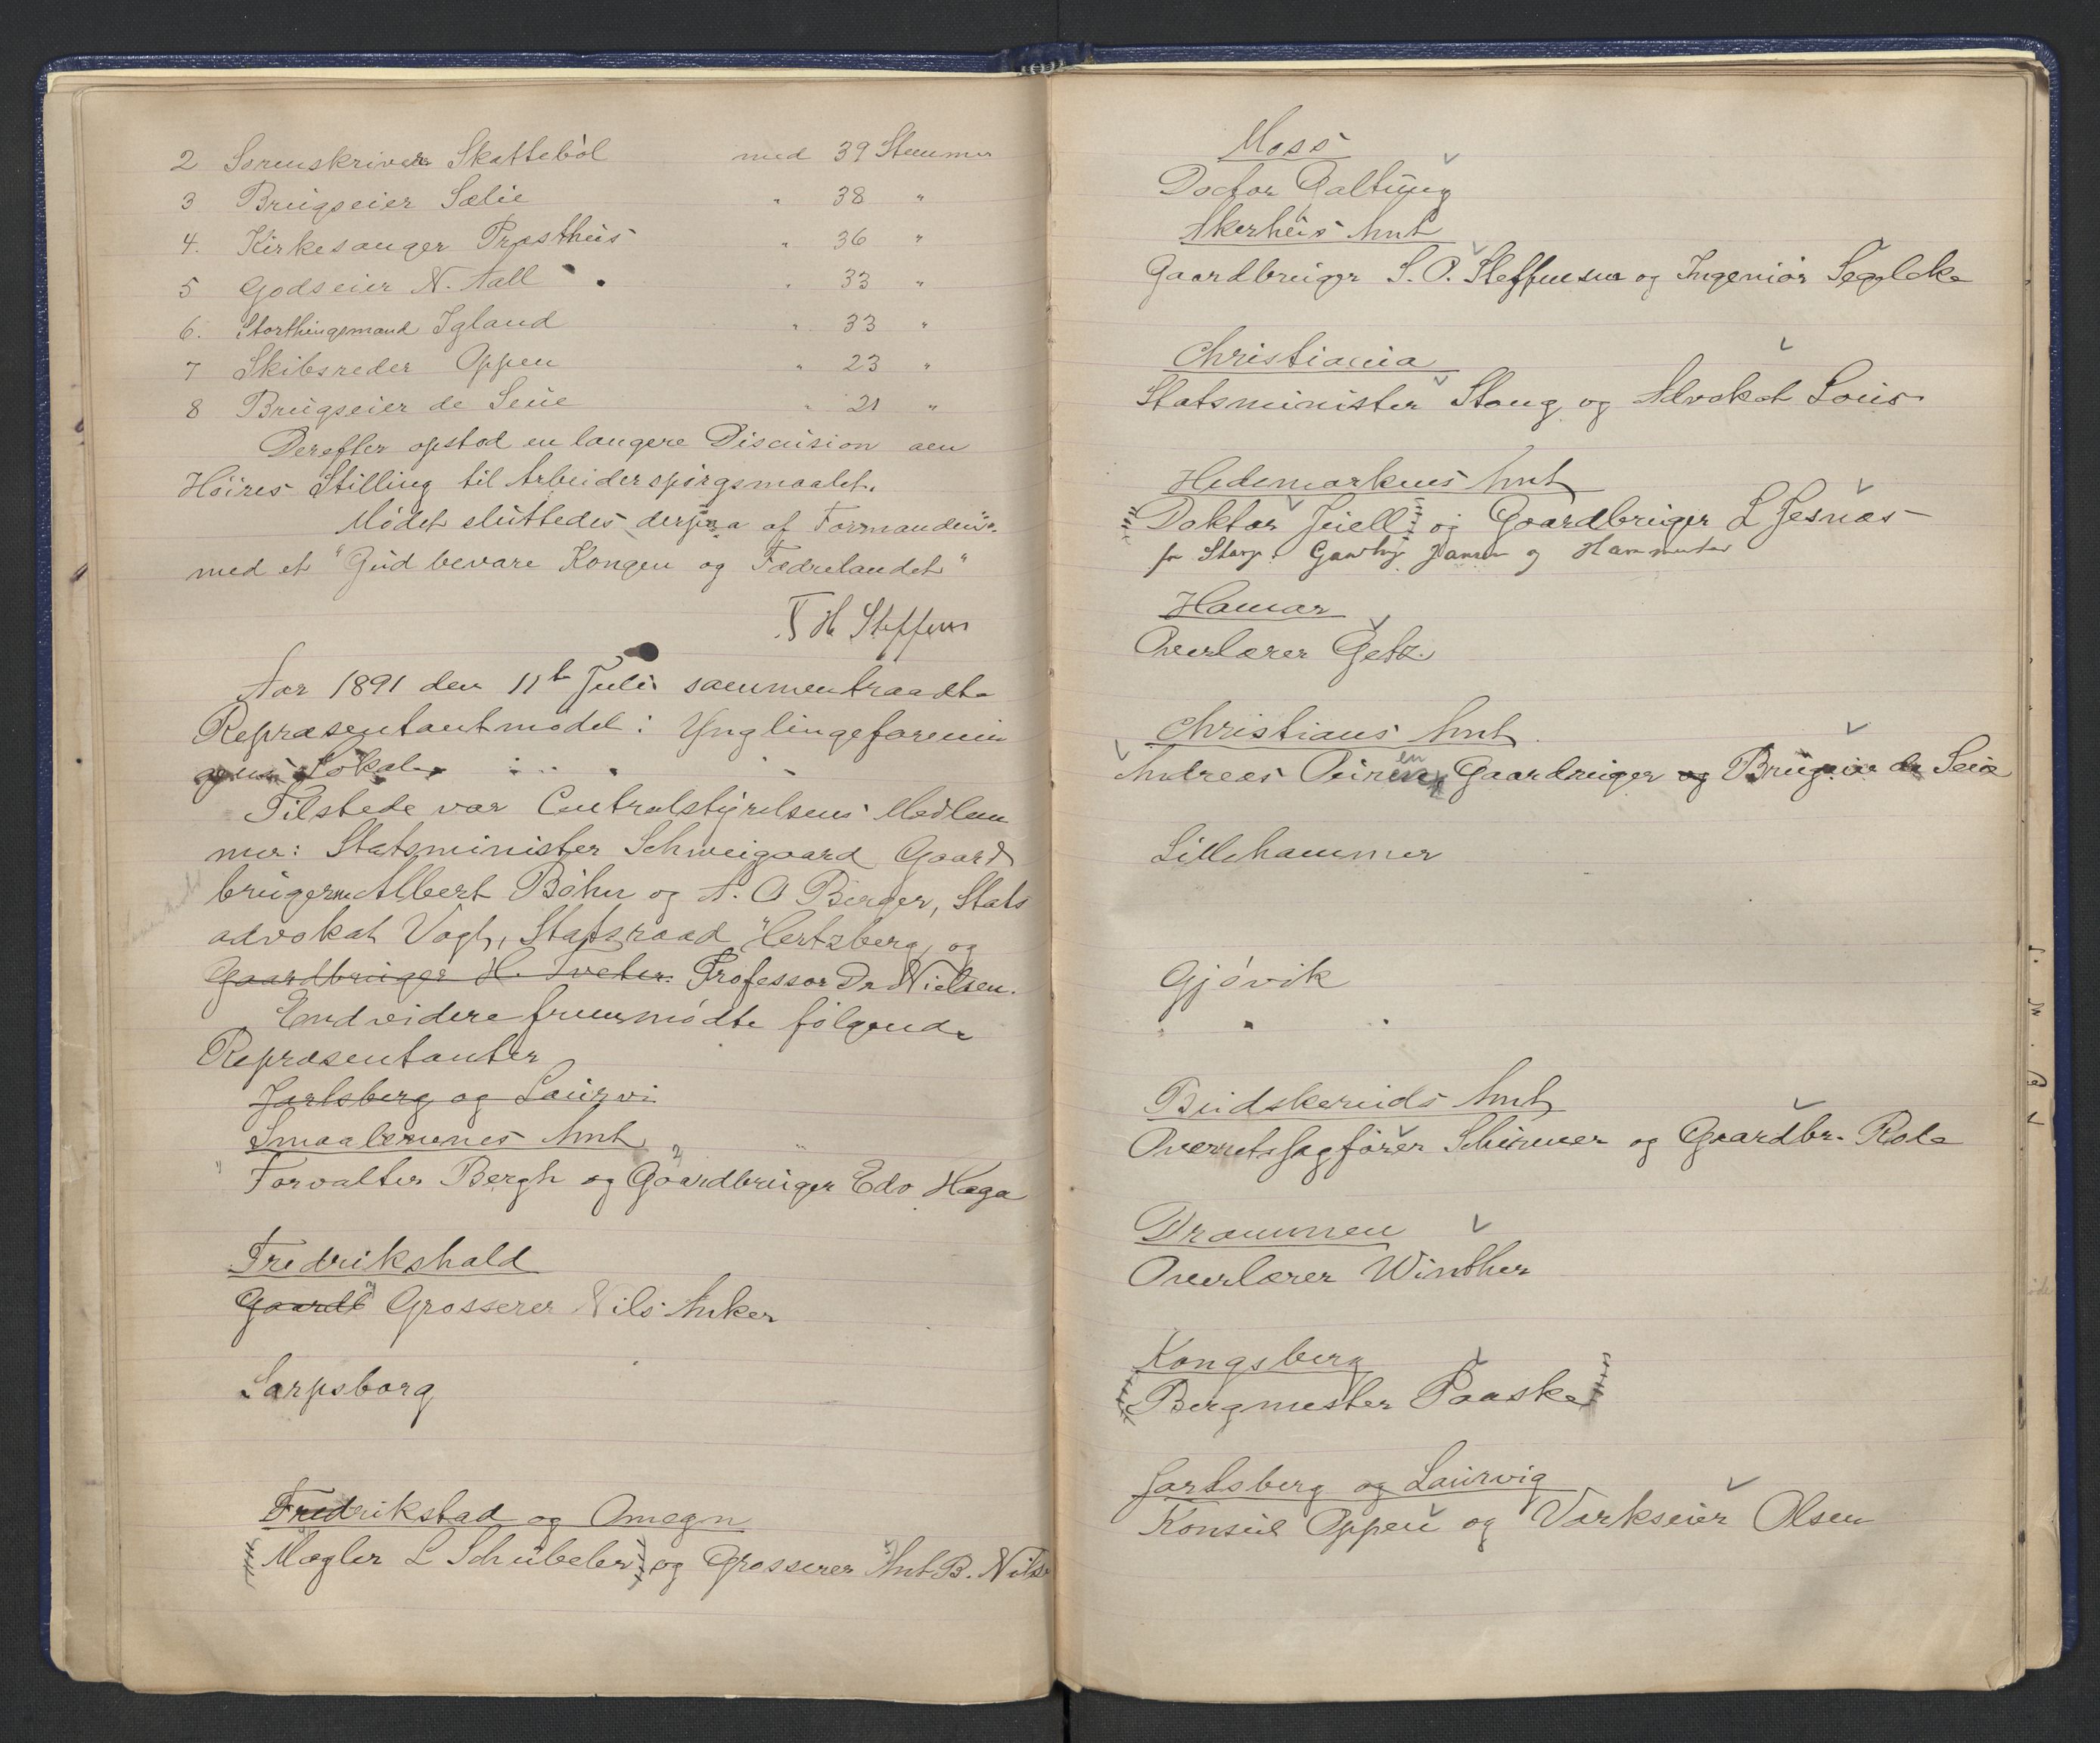 2 Sorenskriver Skattebøl med 39 Stemmer
3 Brugseier Sælie " 38 "
4. Kirkesanger Præsthus " 36 "
5 Godseier N. Aall " 33 "
6. Storthingsmand Igland " 33 "
7 Skibsreder Oppen " 23 "
8 Brugseier de Seue " 21 "
Derefter opstod en længere Discusion om
Høires Stilling til Arbeiderspørgsmaalet.
Mødet sluttedes derpaa af Formanden
med et "Gud bevare Kongen og Fædrelandet"
H Steffens
Aar 1891 den 11t Juli sammentraadte
Repræsentantmødet i Ynglingeforenin
gens Lokale
Tilstede var Centralstyrelsens Medlem
mer: Statsminister Schweigaard Gaard
brugerne Albert Bøhn og A. O Berger, Stats
advokat Vogt, Statsraad Hertzberg, og
Gaardbruger H. Tveter. Professor Dr Nielsen.
Endvidere fremmødte følgende
Repræsentanter
Jarlsberg og Laurvi
Smaalenenes Amt
Forvalter Bergh og Gaardbruger Edv Haga
Fredrikshald
Gaardb Grosserer Nils Anker
Sarpsborg
Fredrikstad og Omegn
Mægler L Schübeler og Grosserer Ant B. Nils
Moss
Doctor Galtung
Akerhus Amt
Gaardbruger S. P. Steffensen og Ingeniør Segelcke
Christiania
Statsminister Stang og Advokat Lous
Hedemarkens Amt
Doktor Juell og Gaardbruger L Jesnæs
for Stange Gaardbr Jansen og
Hamar
Overlærer Getz.
Christians Amt
Andreas Gaardbruger og Brugseier de Seue
Lillehammer
Gjøvik
Buskeruds Amt
Overretssagfører Schirmer og Gaardbr. Rola
Drammen
Overlærer Winther
Kongsberg
Bergmester Paaske
Jarlsberg og Laurvig
Konsul Oppen og Værkseier Olsen